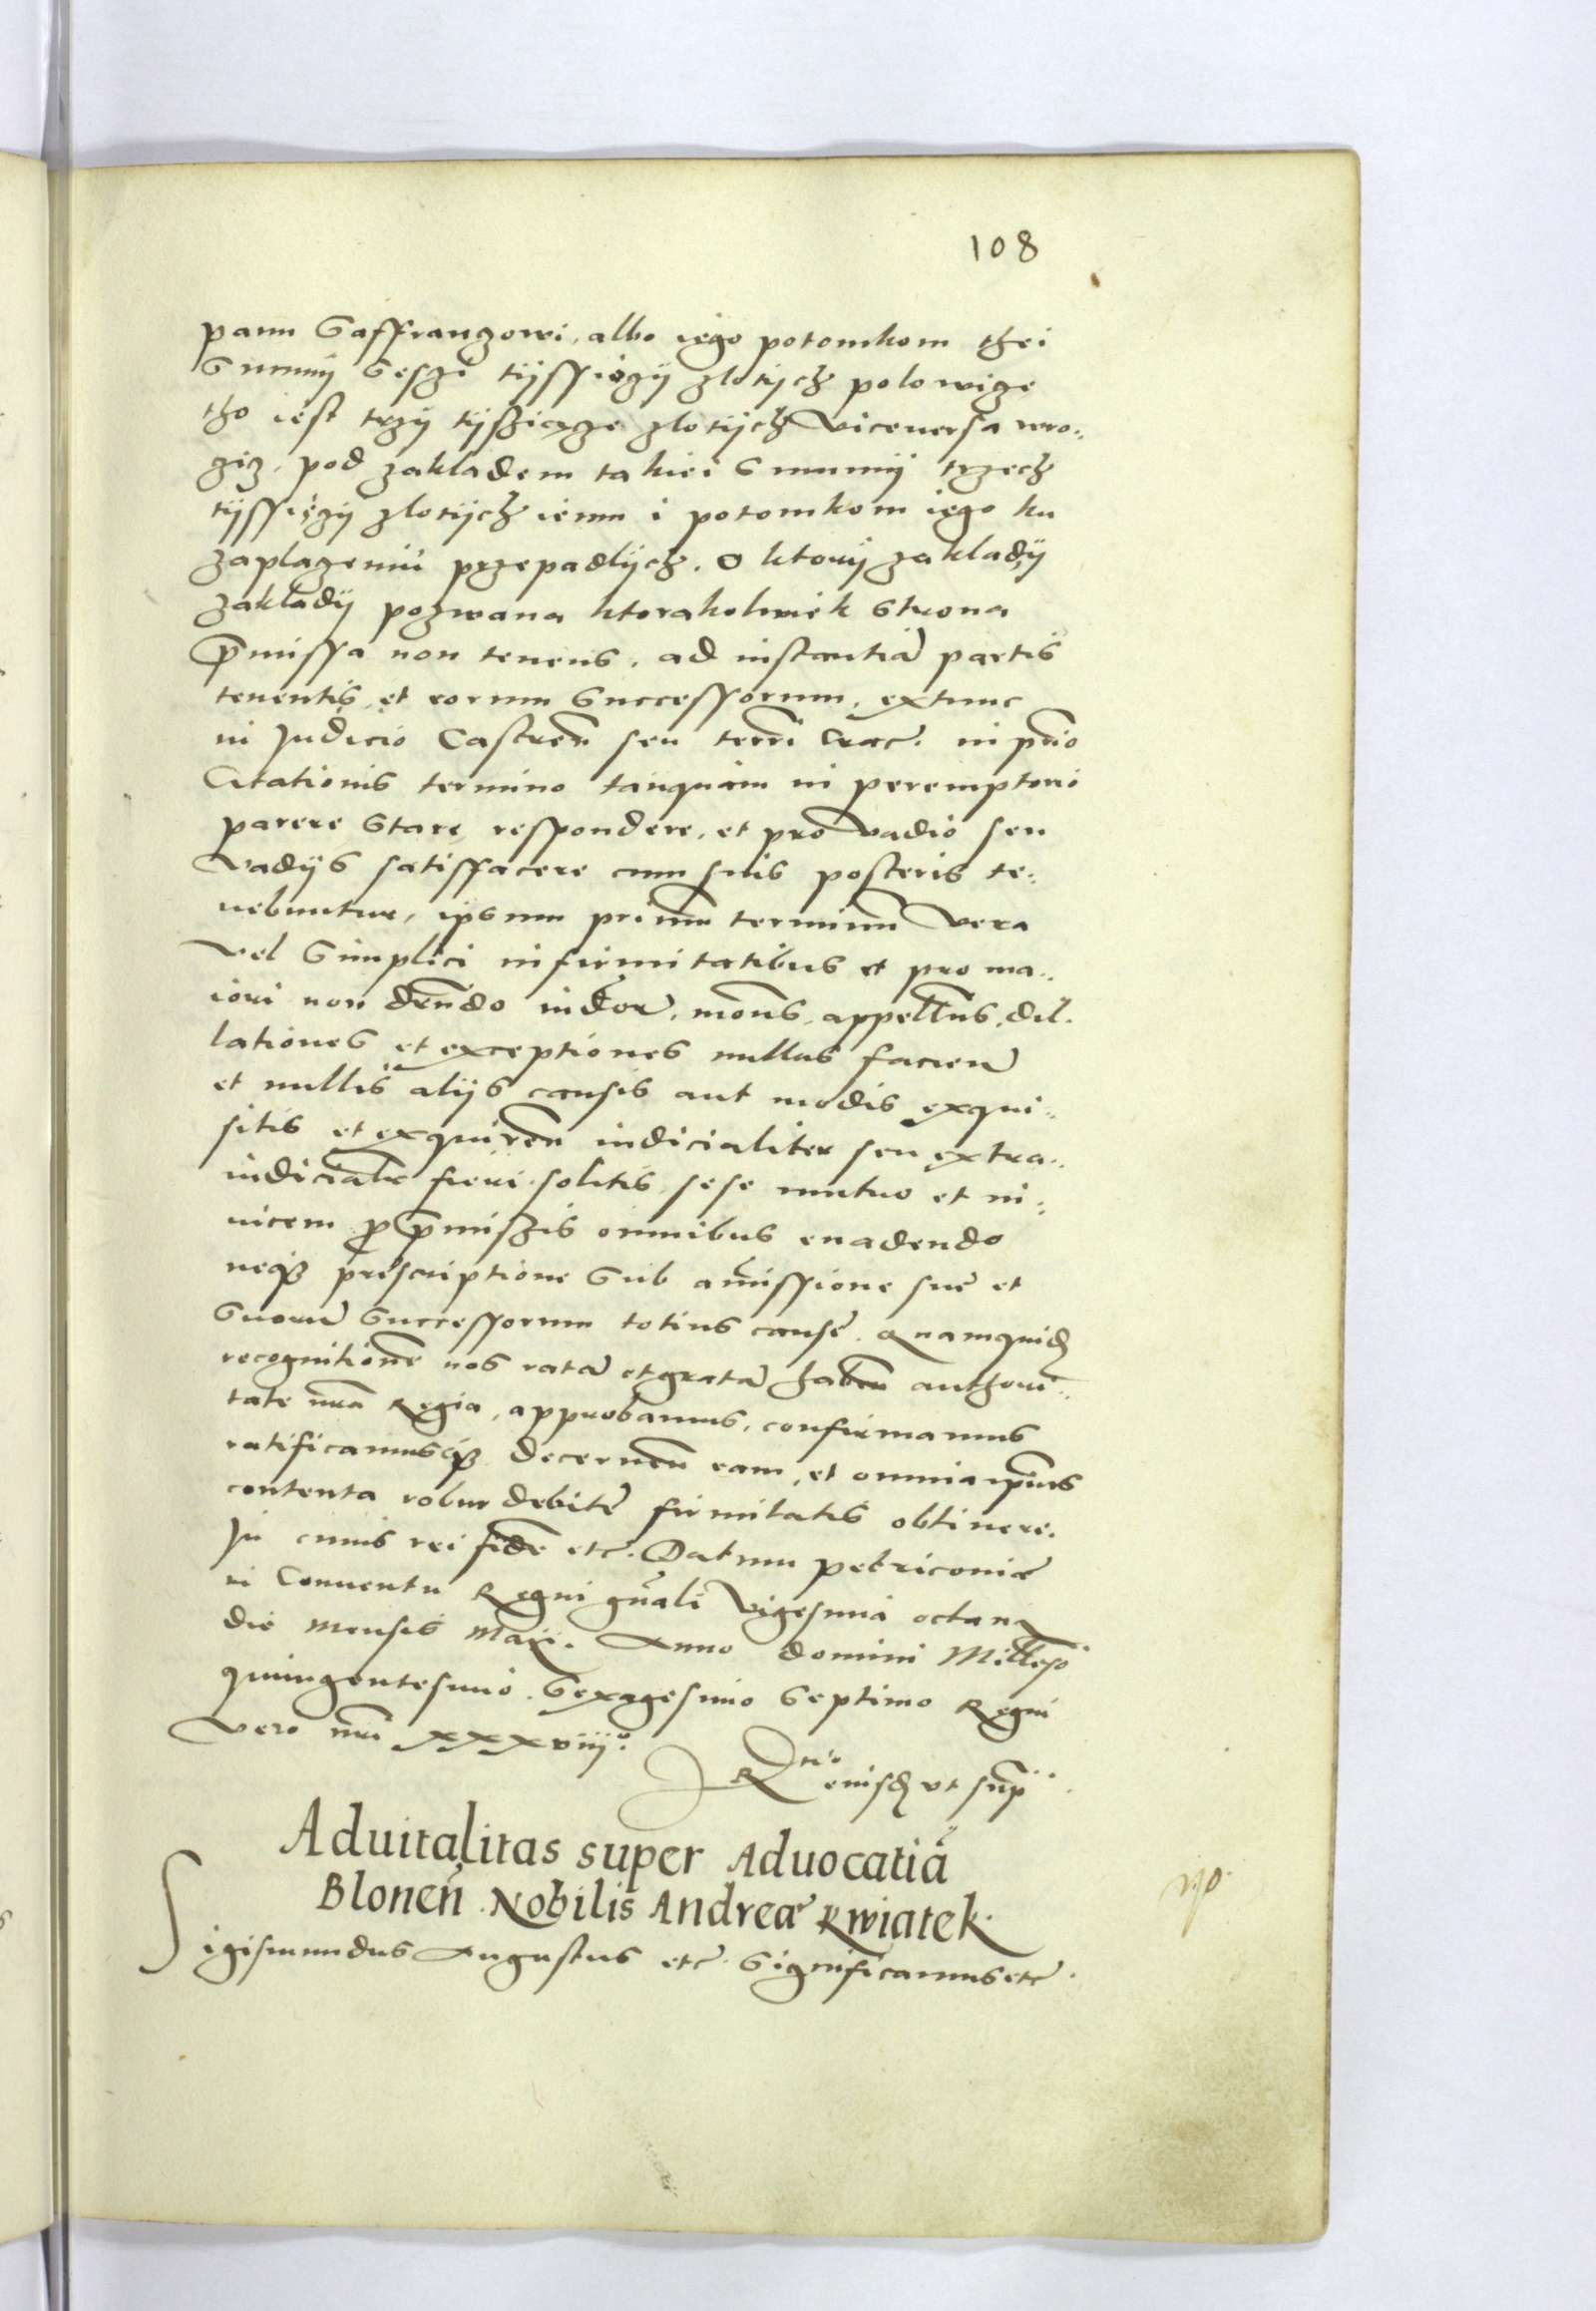 108
panu Saffranzowi, albo iego potomkom thei
Summy Sesczi tyssięzy zlotych polowize
tho iest trzy tysziącze zlotych Viceuersa wro⸗
ziz, pod zakladem takiei Summy trzech
tyssięzy zlotych iemu i potomkom iego ku
zaplazeniu przepadlych. O ktory zaklady
zaklady pozwana ktorakolwiek Strona
p̄missa non tenens, ad instantiā partis
tenentis, et eorum Successorum, extunc
in Judicio Castreñ seu terrī Crac. in prīo
Citationis termino tanquam in peremptorio
parere Stare respondere, et pro Vadio seu
Vadijs satisfacere cum suis posteris te⸗
nebuntur, ipsum primū terminū Vera
Vel Simplici infirmitatibus et pro ma⸗
iori non dicēndo iudicior̄, mōns, appellōns, dil⸗
lationes et exceptiones nullas faciend̄
et nullis alijs causis aut modis exqui⸗
sitis et exquireñ iudicialiter seu extra⸗
iudicialr̄ fieri solitis, sese mutuo et in⸗
uicem p̄ p̄miszis omnibus euadendo
neq₃ prescriptione Sub amissione sue et
Suorū Successorum totius causę. Quamquid̄
recognitionē nos ratā et gratā habeñ authori⸗
tate nrā Regia, approbamus, confirmamus
ratificamusq₃ decerneñ eam, et omnia ipīus
contenta robur debitę firmitatis obtinere.
In cuius rei fidē etc. Datum Petricouiæ
in Conuentu Regni gn̄ali Vigesima octaua
die Mensis Maij. Anno domini Millesō
quingentesimo Sexagesimo Septimo Regni
Vero nrī xxxviijo.
Rtio eiusd̄ vt sup̄
Aduitalitas super Aduocatiā
Bloneñ Nobilis Andreæ Kwiatek.
Sigismundus Augustus etc Significamus etc.